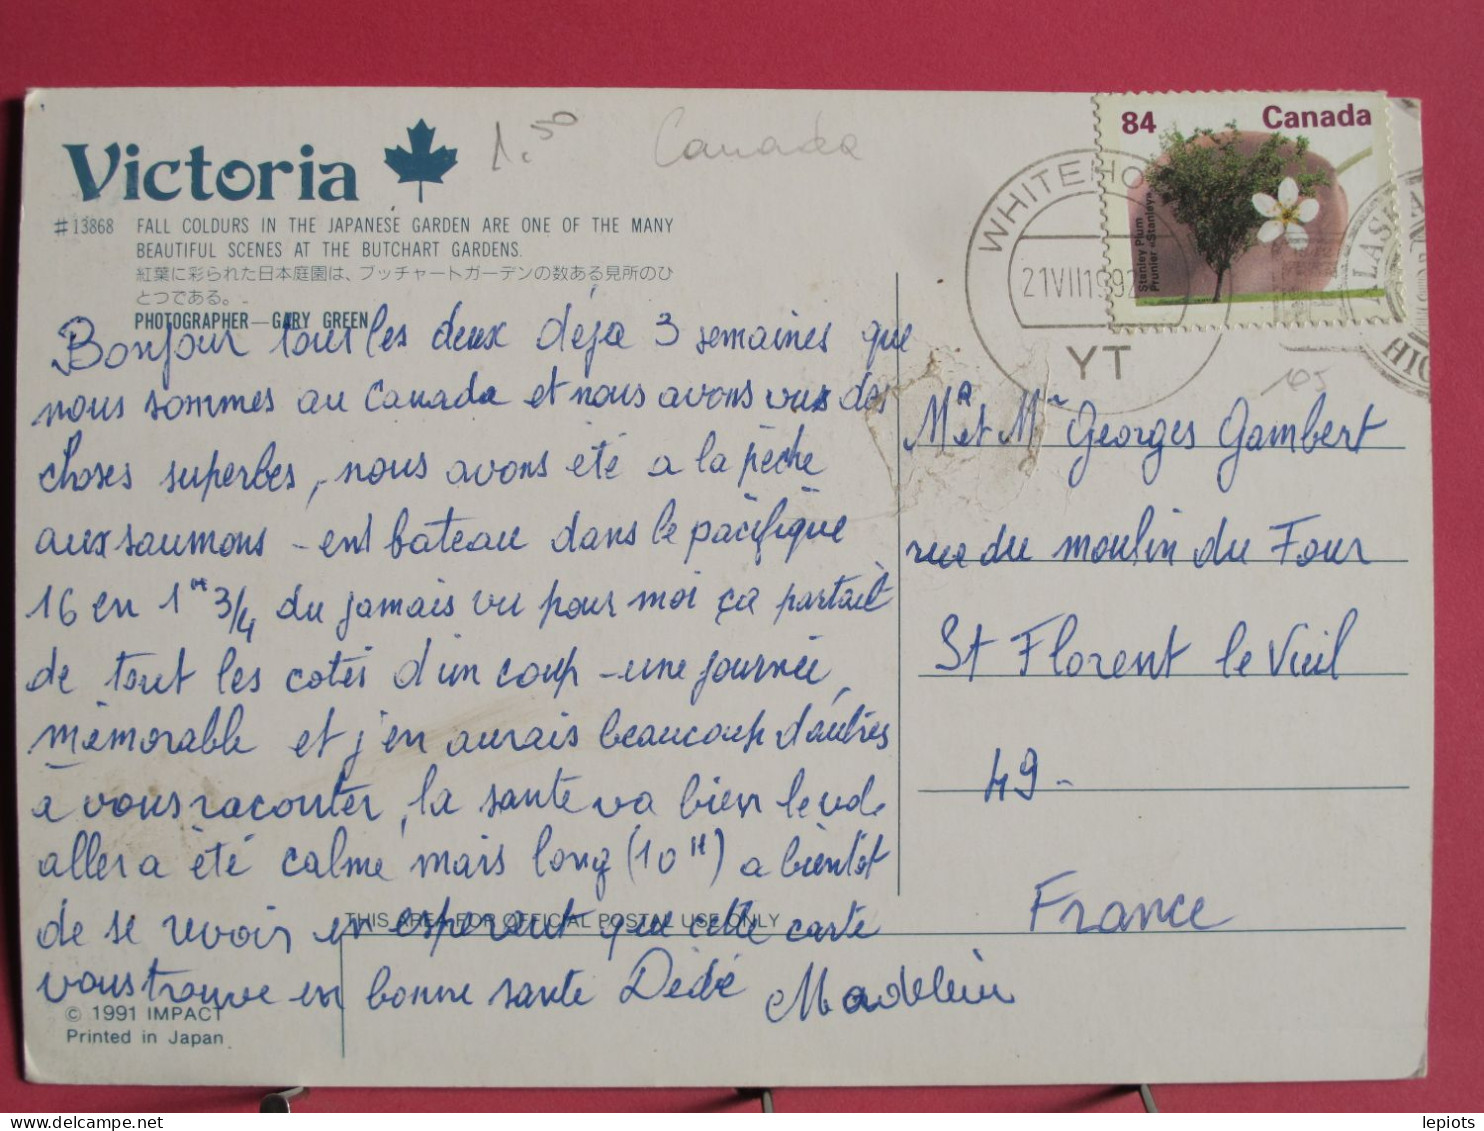 Victoria
1.50
Canada
#13868 FALL COLOURS IN THE JAPANESE GARDEN ARE ONE OF THE MANY
BEAUTIFUL SCENES AT THE BUTCHART GARDENS.
紅葉に彩られた日本庭園は、ブッチャートガーデンの数ある見所のひ
とつである。
PHOTOGRAPHER—GARY GREEN
Bonjour tout les deux déja 3 semaines que
nous sommes au Canada et nous avons vus des
choses superbes, nous avons été a la pêche
aux saumons - en bateau dans le pacifique
16 en 1H 3/4 du jamais vu pour moi ça partait
de tout les cotés d'un coup - une journée
mémorable et j'en aurais beaucoup d'autres
a vous raconter, la santé va bien le vol.
aller a été calme mais long (10H) a bientôt
de se revoir en esperent que cette carte
vous trouve en bonne santé Dédé Madelein
THIS AREA FOR OFFICIAL POSTAL USE ONLY
© 1991 IMPACT
Printed in Japan
84 Canada
Stanley Plum
Prunier «Stanley»
WHITEHO
21VII1992
YT
ALASK
HIG
105
Mr et Me Georges Gambert
rue du moulin du Four
St Florent le Vieil
49 -
France
lepiots